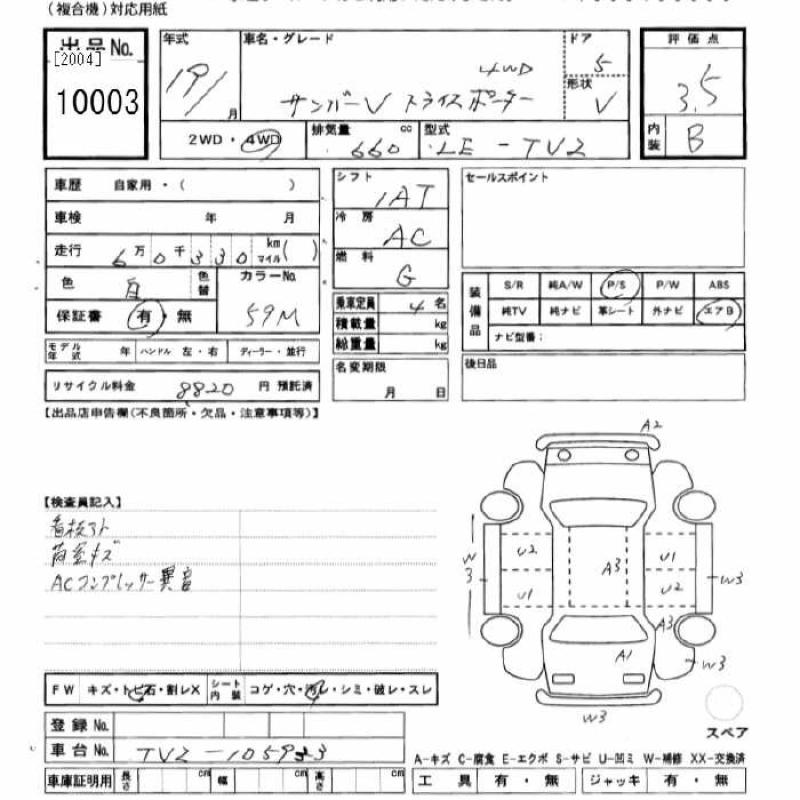 (複合機)対応用紙
出品No.
[2004]
10003
年式
19/
月
車名・グレード
4WD
サンバーV トライスポーター
ドア
5
形状
V
評価点
3.5
2WD・4WD
排気量
660
cc
型式
LE-TV2
内装
B
車歴 自家用・( )
車検 年 月
走行 6万0千330 km マイル( )
色 白 色替 カラーNo.
59M
保証書 有・無
モデル年式 年 ハンドル 左・右 ディーラー・並行
リサイクル料金 8820 円 預託済
シフト
IAT
冷房
AC
燃料
G
乗車定員 4 名
積載量 kg
総重量 kg
名変期限
月 日
セールスポイント
装備品
S/R 純A/W P/S P/W ABS
純TV 純ナビ 革シート 外ナビ エアB
ナビ型番:
後日品
【出品店申告欄(不良箇所・欠品・注意事項等)】
【検査員記入】
看板アト
荷室キズ
ACコンプレッサー異音
A2
U2 U1
W3 A3 W3
U1 U2
A3
A1 W3
W3
スペア
FW キズ・トビ石・割レX シート内装 コゲ・穴・汚レ・シミ・破レ・スレ
登録No.
車台No. TV2-105923
A-キズ C-腐食 E-エクボ S-サビ U-凹ミ W-補修 XX-交換済
車庫証明用 長さ cm 幅 cm 高さ cm
工具 有・無 ジャッキ 有・無